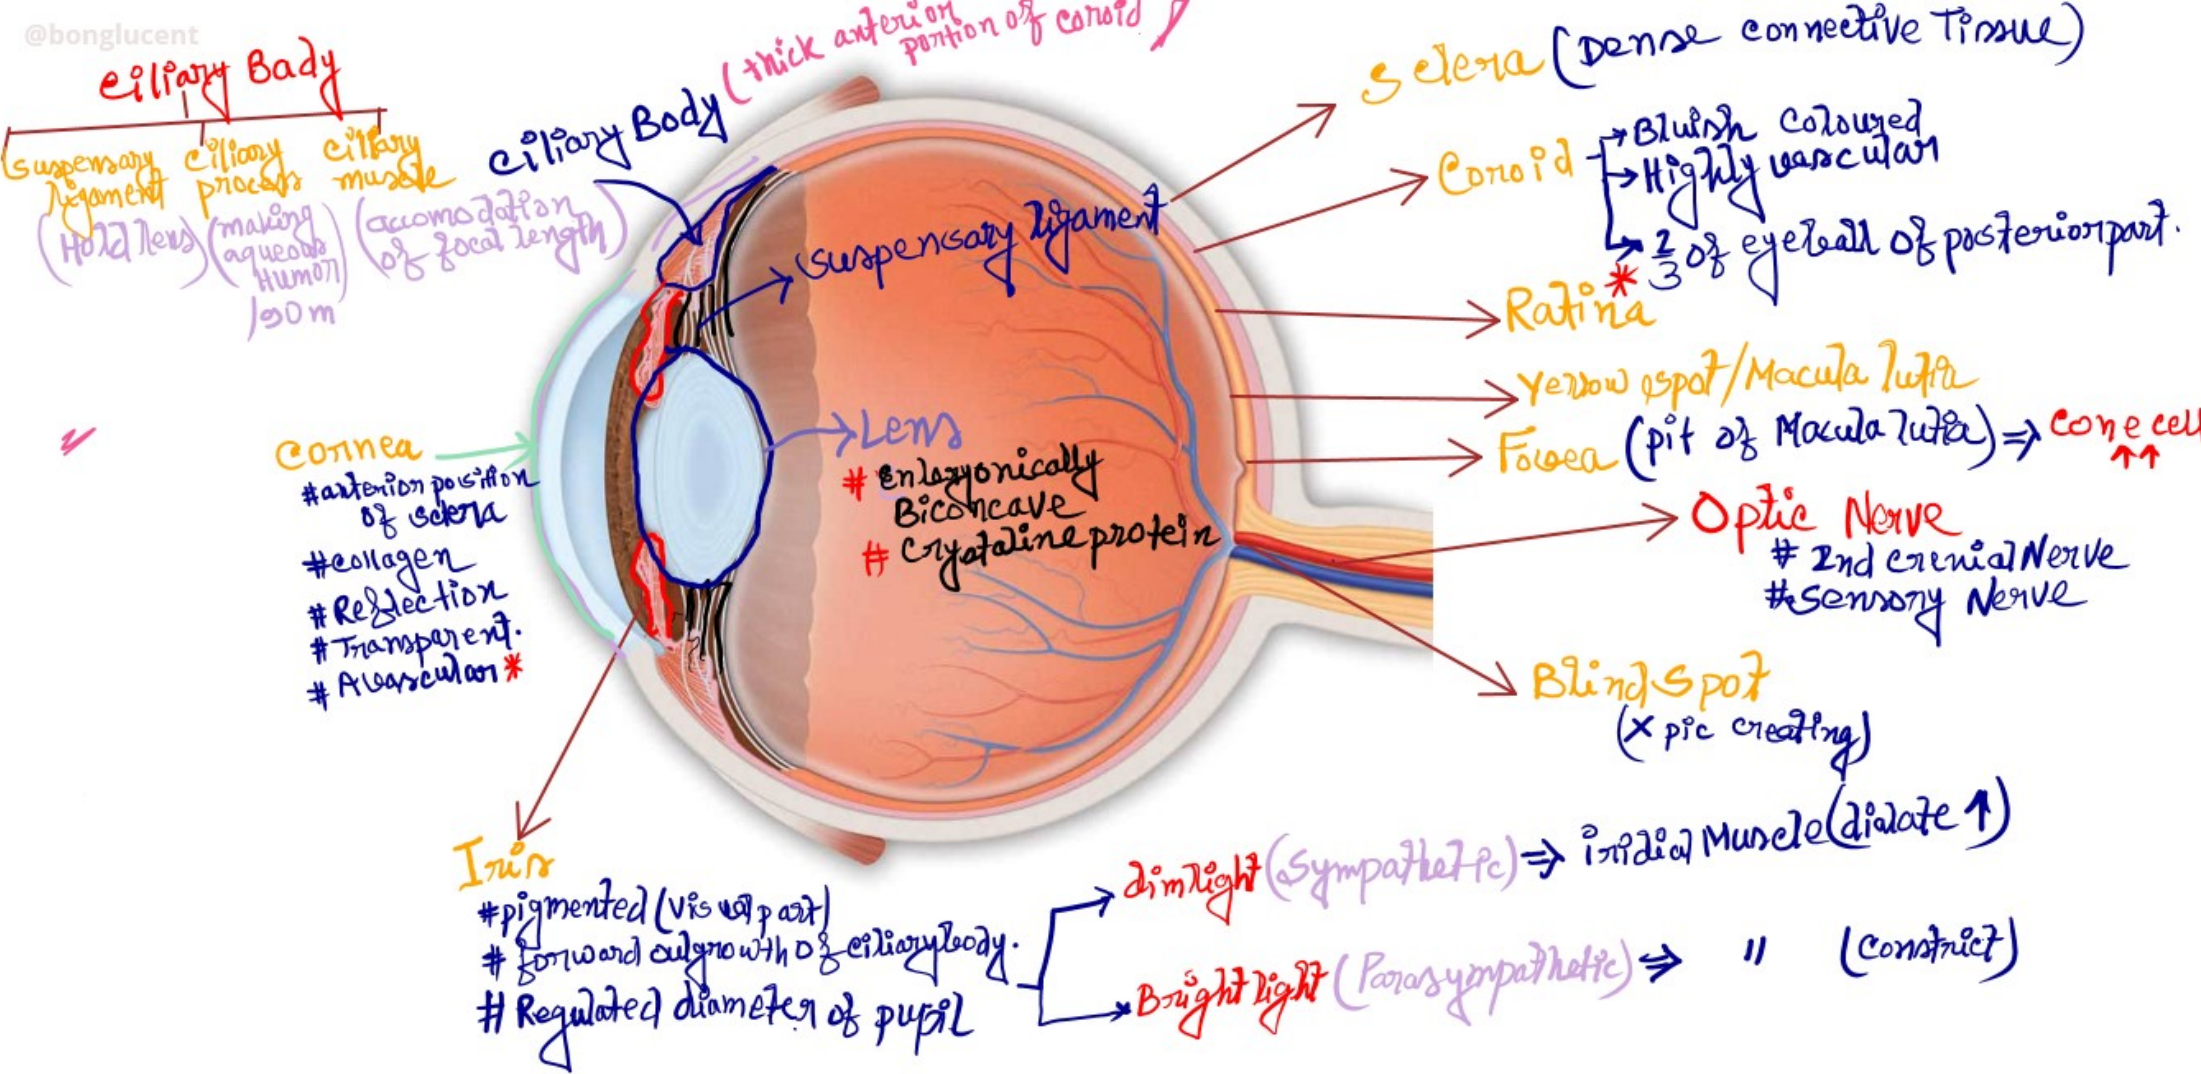 @bonglucent
ciliary Bady
suspensary
ligament
(Hold lens)
ciliary
process
(making
aqueous
Humor)
ciliary
muscle
(accomodation
of focal length)
ciliary Body (thick anterior
portion of coroid)
suspensary ligament
Sclera (Dense connective Tissue)
Coroid
Bluish coloured
Highly vascular
2/3 of eyeball of posterior part.
Ratina *
Yellow spot/Macula lutia
Fovea (pit of Macula lutia) ⇒ cone cell
↑↑
Optic Nerve
# 2nd crenial Nerve
# Sensory Nerve
Blind Spot
(x pic creating)
cornea
# anterior position
of sclera
# collagen
# Reflection
# Transparent.
# Avascular *
Lens
# Enbryonically
Biconcave
# Crystaline protein
Iris
# pigmented (visual part)
# forword outgrowth of ciliary body.
# Regulated diameter of pupil
dim light (Sympathetic) ⇒ iridial Muscle (dialate ↑)
Bright light (Parasympathetic) ⇒ " (constrict)